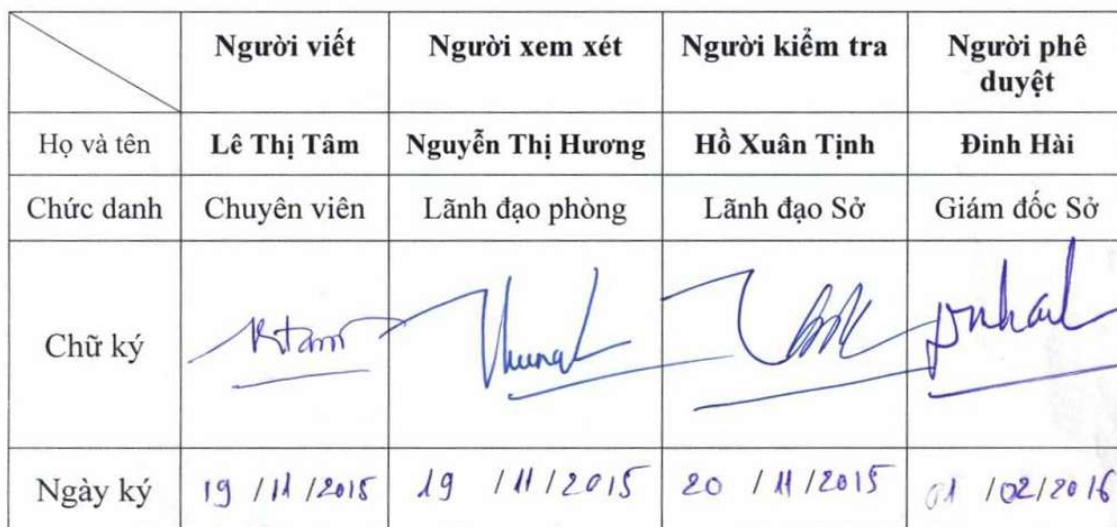 Người viết Người xem xét Người kiểm tra Người phê
duyệt
Họ và tên Lê Thị Tâm Nguyễn Thị Hương Hồ Xuân Tịnh Đinh Hài
Chức danh Chuyên viên Lãnh đạo phòng Lãnh đạo Sở Giám đốc Sở
Chữ ký
Ngày ký 19 /11 /2015 19 /11 /2015 20 /11 /2015 01 /02/2016